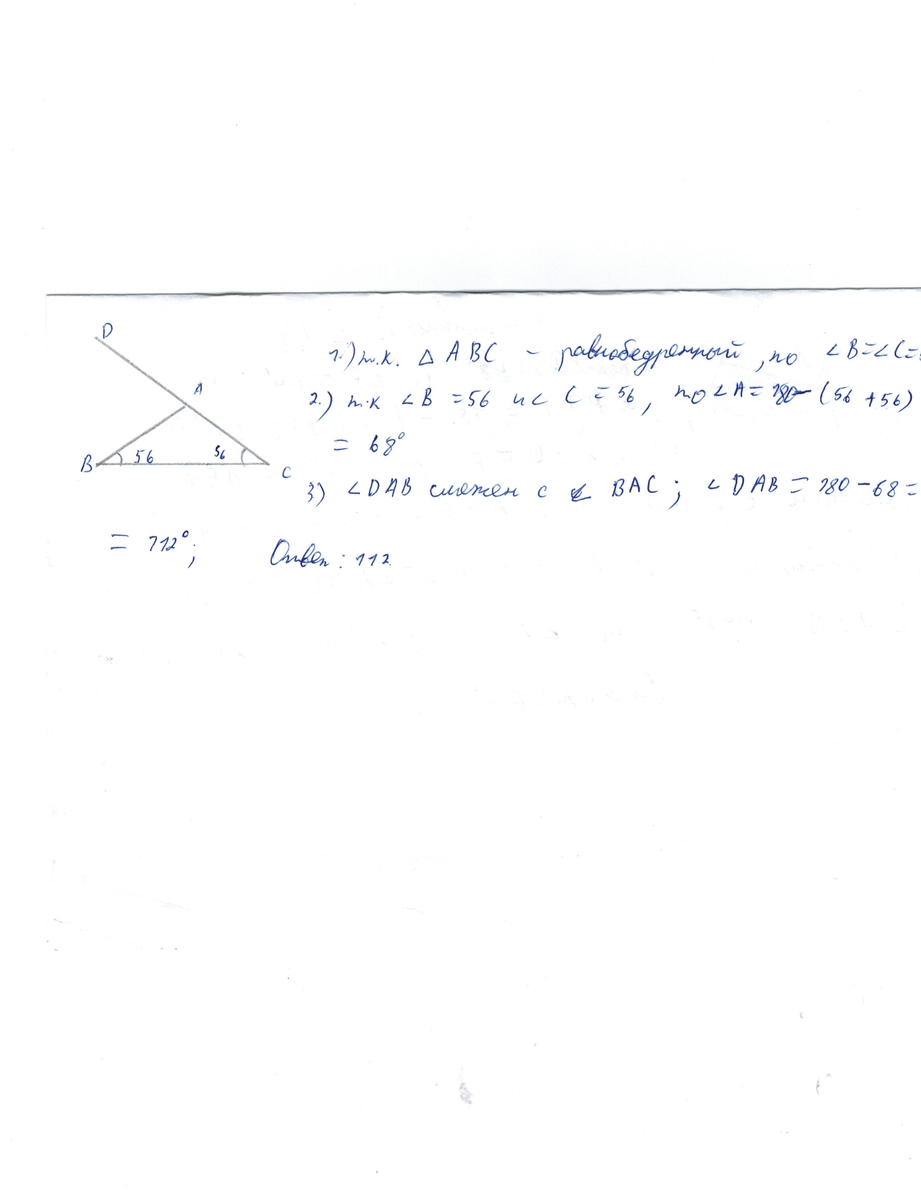 D
A
B 56 56 C
1.) т.к. △ ABC - равнобедренный, то ∠B=∠C=
2.) т.к ∠B =56 и ∠ C = 56, то ∠A= 180-(56+56)
= 68°
3) ∠DAB смежен с ∠ BAC; ∠ DAB = 180-68=
= 112°; Ответ: 112.